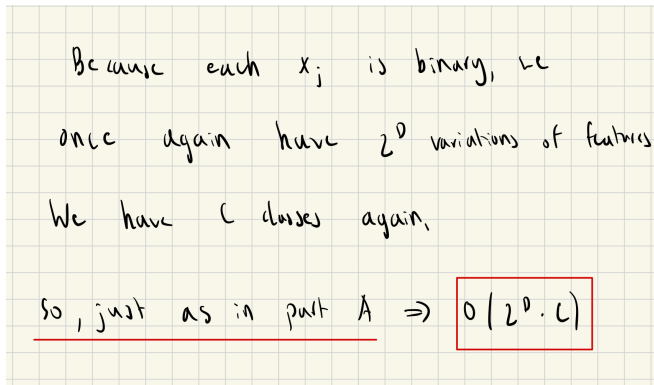 Because each x_j is binary, we
once again have 2^D variations of features
We have C classes again,
so, just as in part A ⇒ O(2^D · C)